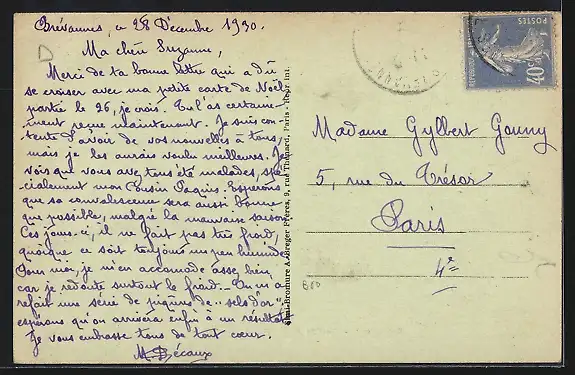 Brévannes, a 28 Décembre 1930.
Ma chère Suzanne,
Merci de ta bonne lettre qui a dû
se croiser avec ma petite carte de Noël
partie le 26, je crois. Tu l'as certaine-
ment reçue maintenant. Je suis con-
tente d'avoir de vos nouvelles à tous,
mais je les aurais voulu meilleures. Je
vois que vous avez tous été malades, spé-
cialement mon cousin Jacques. Espérons
que sa convalescence sera aussi bonne
que possible, malgré la mauvaise saison.
Ces jours-ci, il ne fait pas très froid,
quoique ce soit toujours un peu humide.
Pour moi, je m'en accomode assez bien
car je redoute surtout le froid. On m'a
refait une série de piqûres de "sels d'or",
espérons qu'on arrivera enfin à un résultat.
Je vous embrasse tous de tout cœur.
M. Bécaux
Breger Frères, 9, rue Thénard, Paris
Madame Gylbert Gonny
5, rue du Trésor
Paris
4e
POSTES
40c